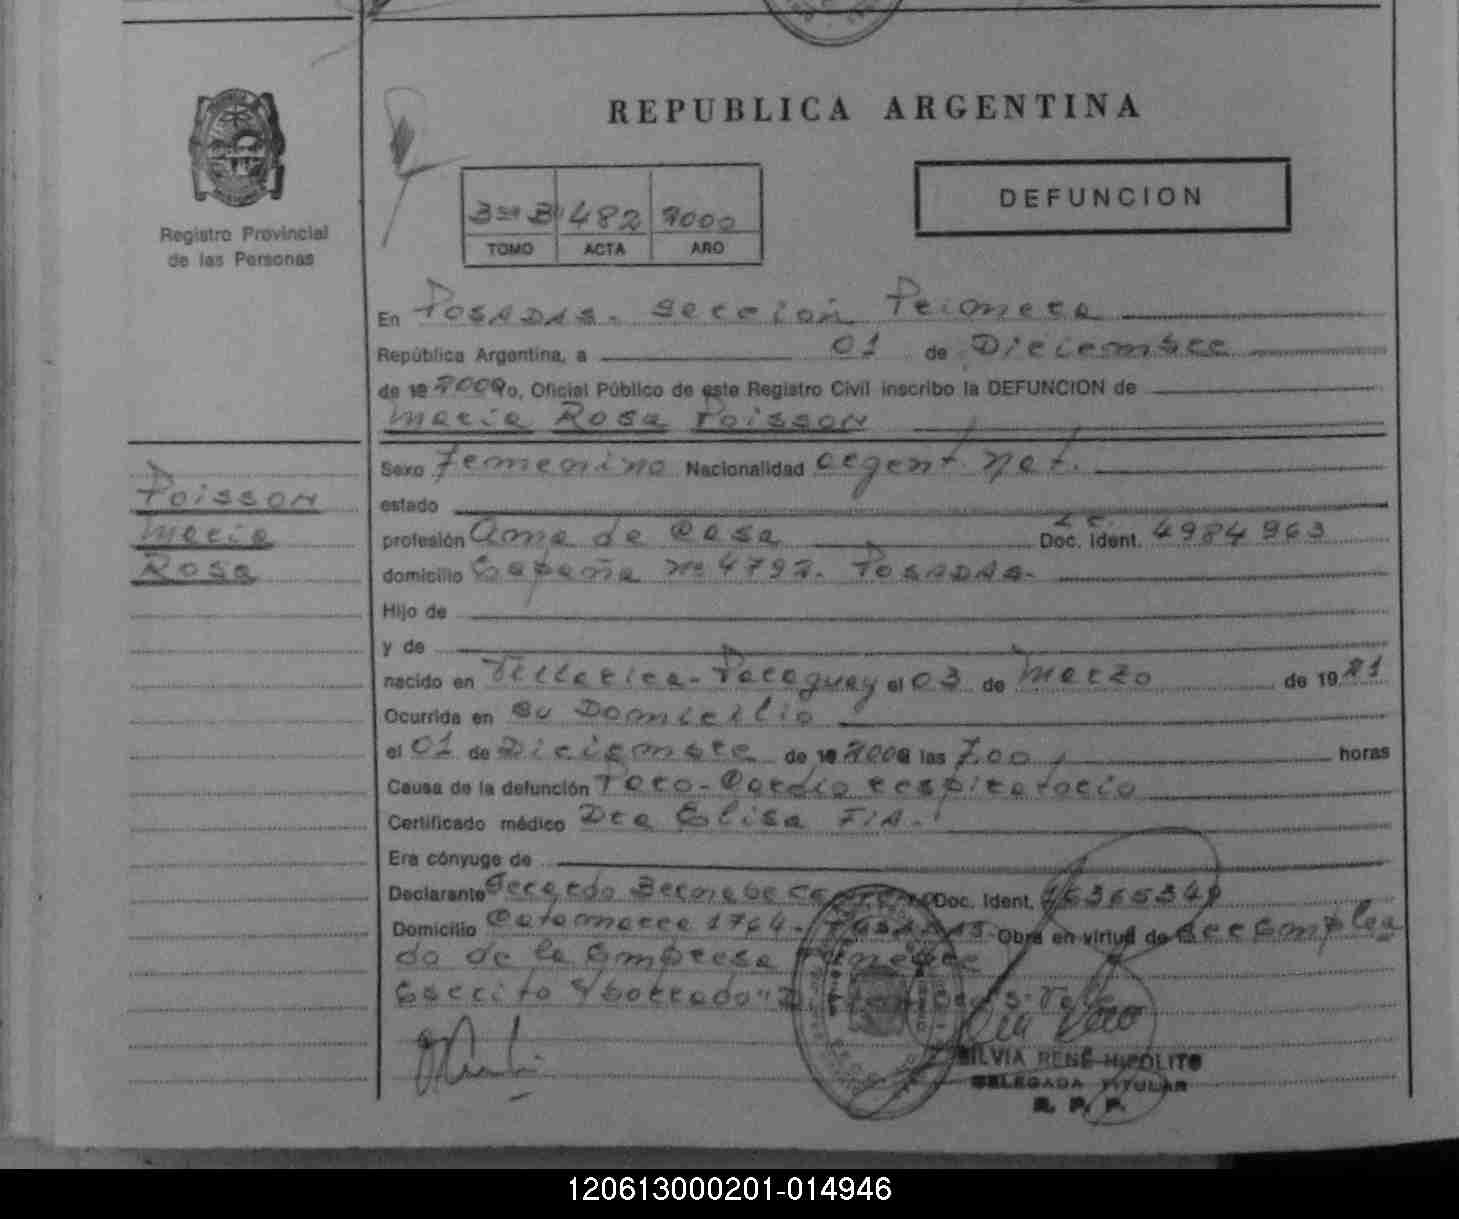 REPUBLICA ARGENTINA
DEFUNCION
Registro Provincial
de las Personas
482 2000
TOMO ACTA AÑO
En POSADAS. Seccion Primera
República Argentina, a 01 de Diciembre
de 19 2000 yo, Oficial Público de este Registro Civil inscribo la DEFUNCION de
Maria Rosa Poisson
Poisson
Maria
Rosa
Sexo Femenino Nacionalidad argent. nat.
estado
profesión Ama de Casa Doc. Ident. L.C. 4984963
domicilio España Nº 4797. POSADAS.
Hijo de
y de
nacido en Villarica-Paraguay el 03 de Marzo de 19 21
Ocurrida en su Domicilio
el 01 de Diciembre de 19 2000 a las 7.00 horas
Causa de la defunción Paro-Cardio respiratorio
Certificado médico Dra Elisa
Era cónyuge de
Declarante Gerardo Bernabe Doc. Ident. 16365349
Domicilio Catamarca 1764. POSADAS Obra en virtud de ser Emplea
do de la Empresa Funebre
Escrito s/borrado "Vale
SILVIA RENÉ HIPOLITO
DELEGADA TITULAR
R. P. P.
120613000201-014946